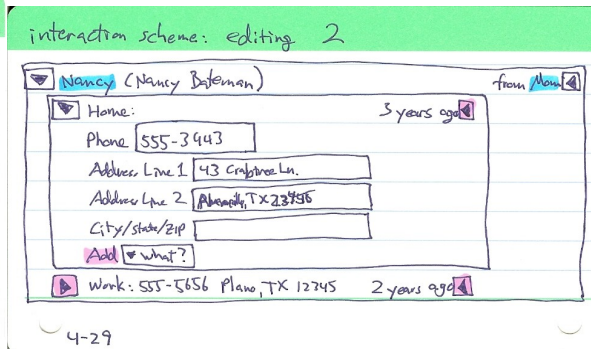 interaction scheme: editing 2
Nancy (Nancy Bateman) from Mom
Home: 3 years ago
Phone 555-3443
Address Line 1 43 Crabtree Ln.
Address Line 2 TX
City/State/ZIP
Add what?
Work: 555-5656 Plano, TX 12345 2 years ago
4-29